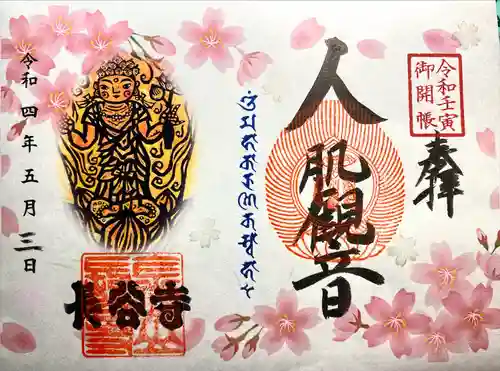 令和壬寅
御開帳
奉拝
人肌觀音
長谷寺
令和四年五月三日